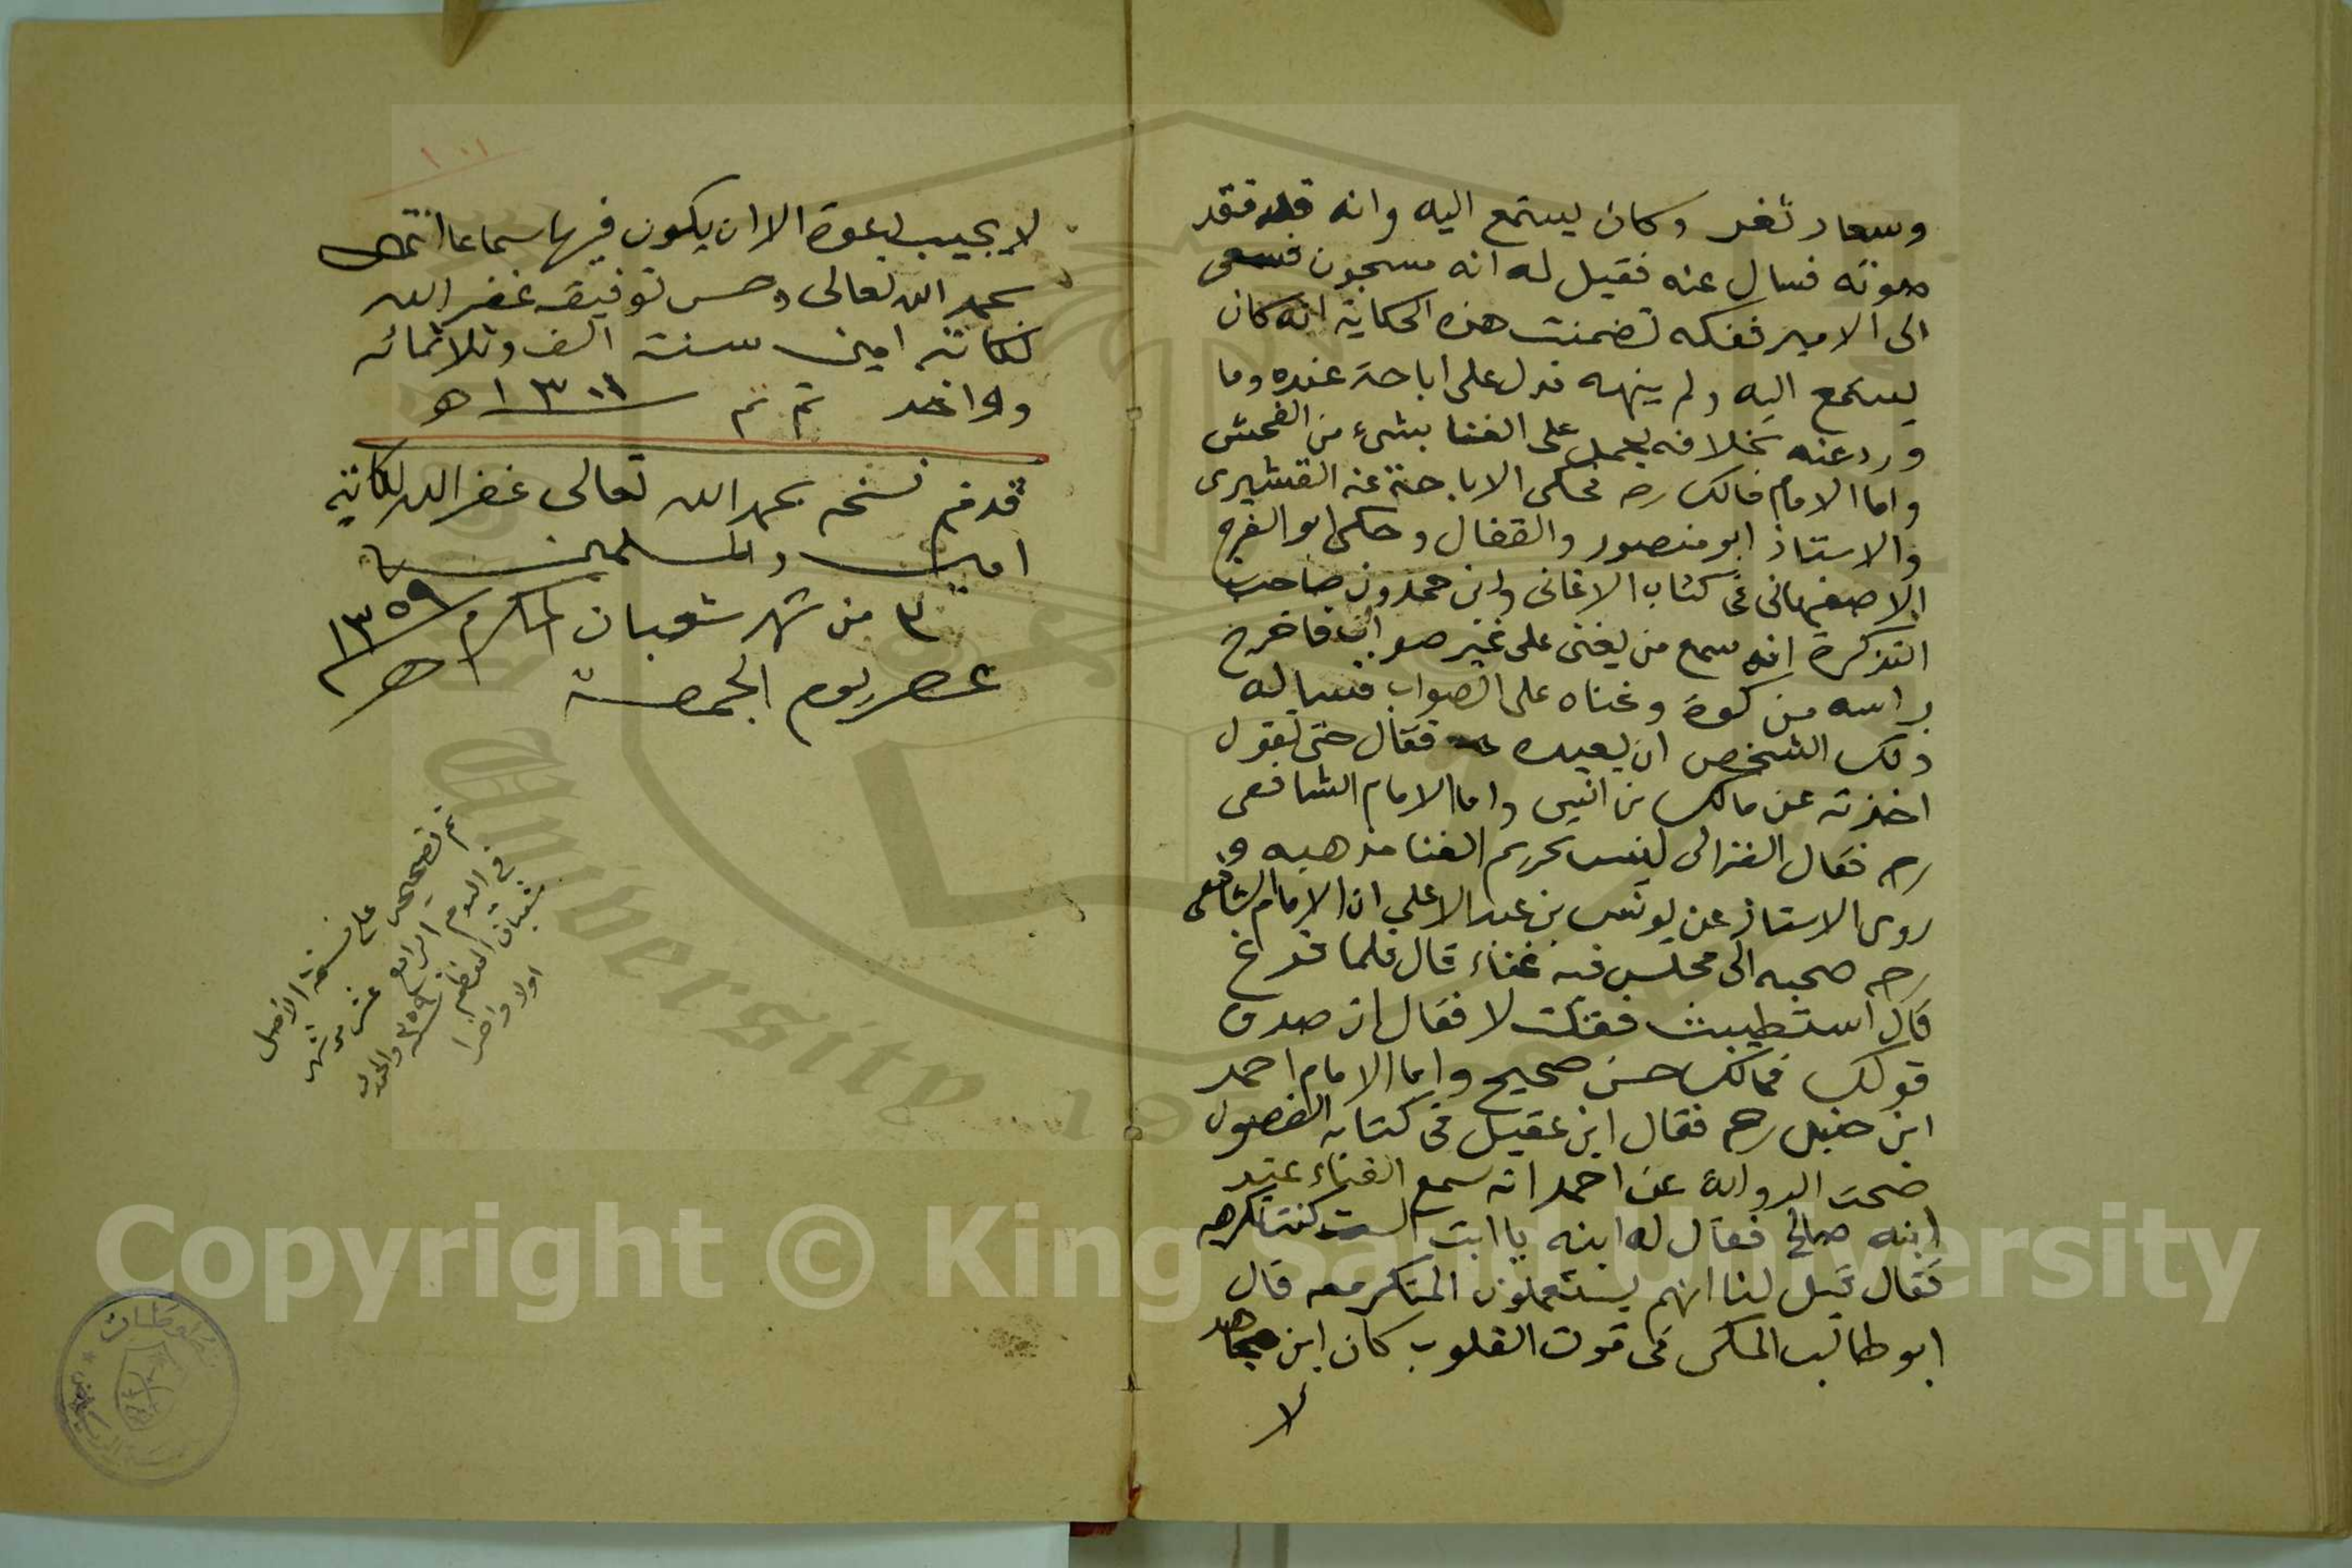 وسداد ثغر وكان يستمع اليه وانه قد فقد
صوته فسال عنه فقيل له انه مسجون فسعى
الى الامير ففكه تضمنت هذه الحكاية انه كان
يستمع اليه ولم ينهه فدل على اباحته عنده وما
ورد عنه بخلافه يحمل على الغنا بشيء من الفحش
واما الامام مالك رحه فحكى الاباحة عنه القشيرى
والاستاذ ابو منصور والقفال وحكى ابو الفرج
الاصفهانى فى كتاب الاغانى وابن حمدون صاحب
التذكرة انه سمع من يغنى على غير صواب فاخرج
راسه من كوة وغناه على الصواب فساله
ذلك الشخص ان يعيده فقال حتى تقول
اخذته عن مالك بن انس واما الامام الشافعى
رحه فقال الغزالى ليس تحريم الغنا مذهبه و
روى الاستاذ عن يونس بن عبد الاعلى ان الامام الشافعى
رحه صحبه الى مجلس فيه غناء قال فلما فرغ
قال استطيبت فقلت لا فقال ان صدق
قولك فمالك حس صحيح واما الامام احمد
ابن حنبل رحه فقال ابن عقيل فى كتابه الفصول
صحت الرواية عن احمد انه سمع الغناء عند
ابنه صالح فقال له ابنه يا ابت الست كنت تكرهه
فقال قيل لنا انهم يستعملون المنكر معه قال
ابو طالب المكى فى قوت القلوب كان ابن مجاهد
لا
١٠١
لا يجيب دعوة الا ان يكون فيها سماعا انتهى
بحمد الله تعالى وحسن توفيقه غفر الله
لكاتبه امين سنة الف وثلاثمائه
وواحد تم تم ١٣٠١ ه
قد تم نسخه بحمد الله تعالى غفر الله لكاتبه
امين والمسلمين
٣ من شهر شعبان المكرم ١٣٥٩ هـ
عصر يوم الجمعة
تم تصحيحه على نسخة الاصل
فى اليوم الرابع عشر من شهر
شعبان المعظم ١٣٥٩ والحمد لله
اولا واخرا
Copyright © King Saud University